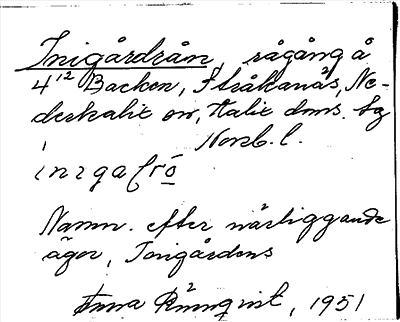 Inigårdrån, rågång å
4¹² Backen, Stråkanäs, Ne-
derkalix sn, Kalix doms. sg
Norrb. l.
inigaɽró
Namn. efter närliggande
ägor, Inigårdens
Anna Rönnqvist, 1951